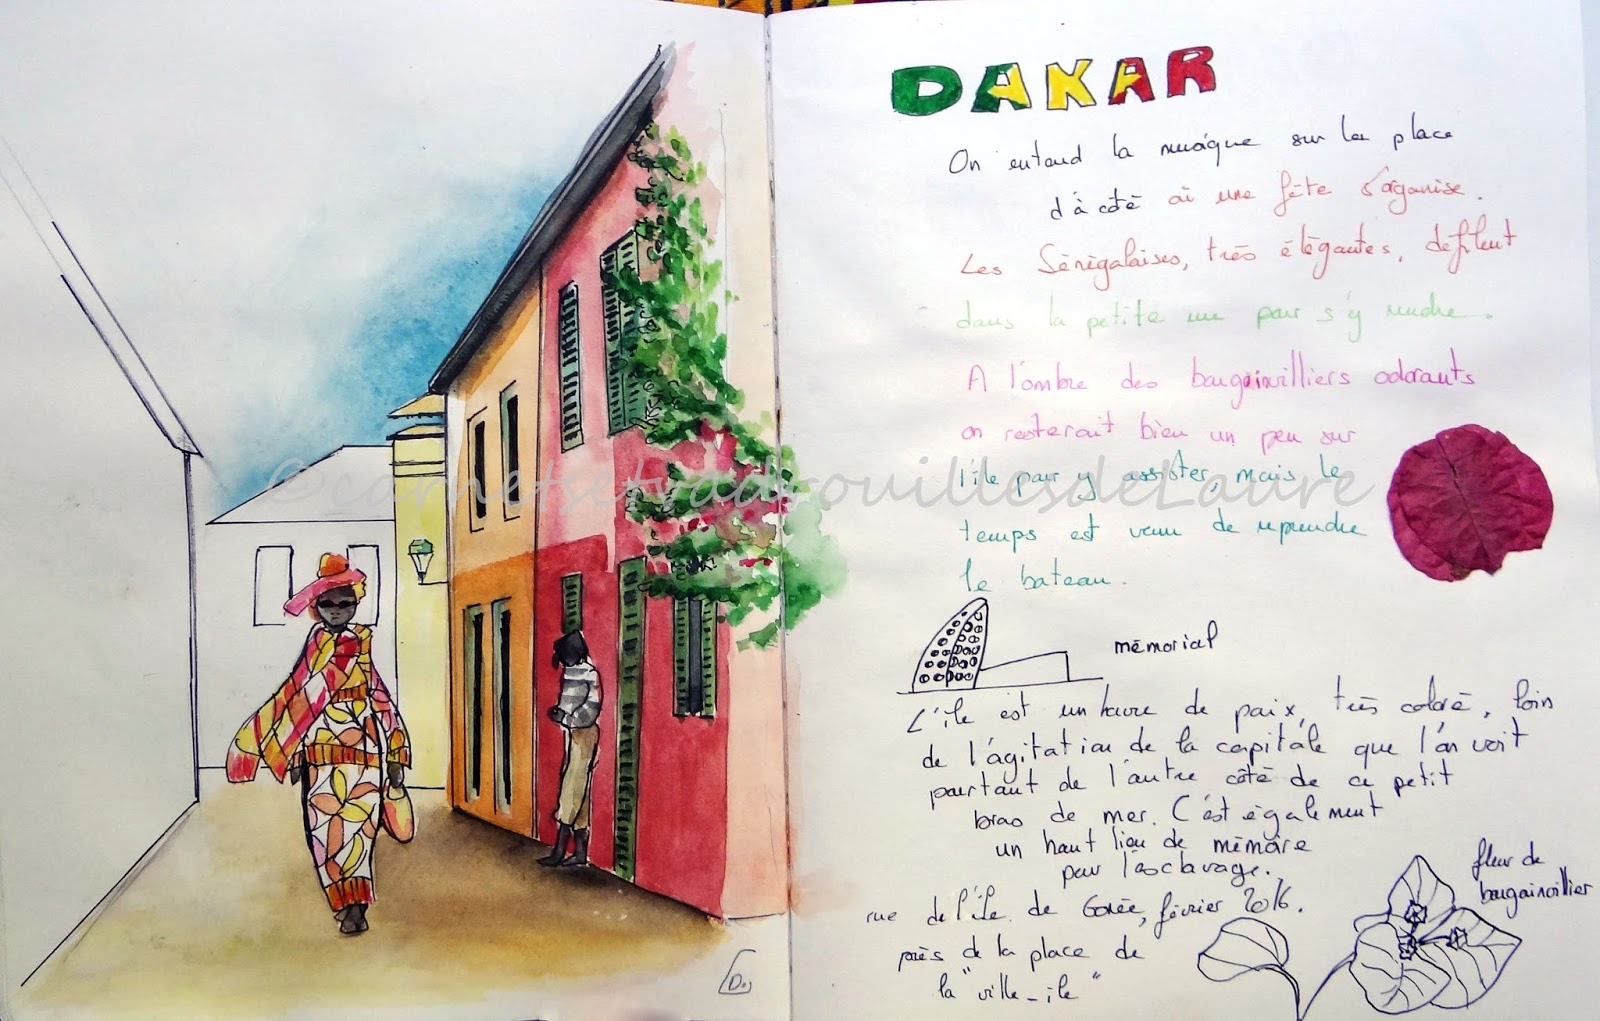 DAKAR
On entend la musique sur la place
d'à côté où une fête s'organise.
Les Sénégalaises, très élégantes, défilent
dans la petite rue pour s'y rendre.
A l'ombre des bougainvilliers odorants
on resterait bien un peu sur
l'île pour y assister, mais le
©carnetsetvadrouillesdeLaure
temps est venu de reprendre
le bateau.
mémorial
L'île est un havre de paix, très coloré, loin
de l'agitation de la capitale que l'on voit
pourtant de l'autre côté de ce petit
bras de mer. C'est également
un haut lieu de mémoire
pour l'esclavage.
fleur de
bougainvillier
rue de l'île de Gorée, février 2016.
près de la place de
la "ville-île"
LD.